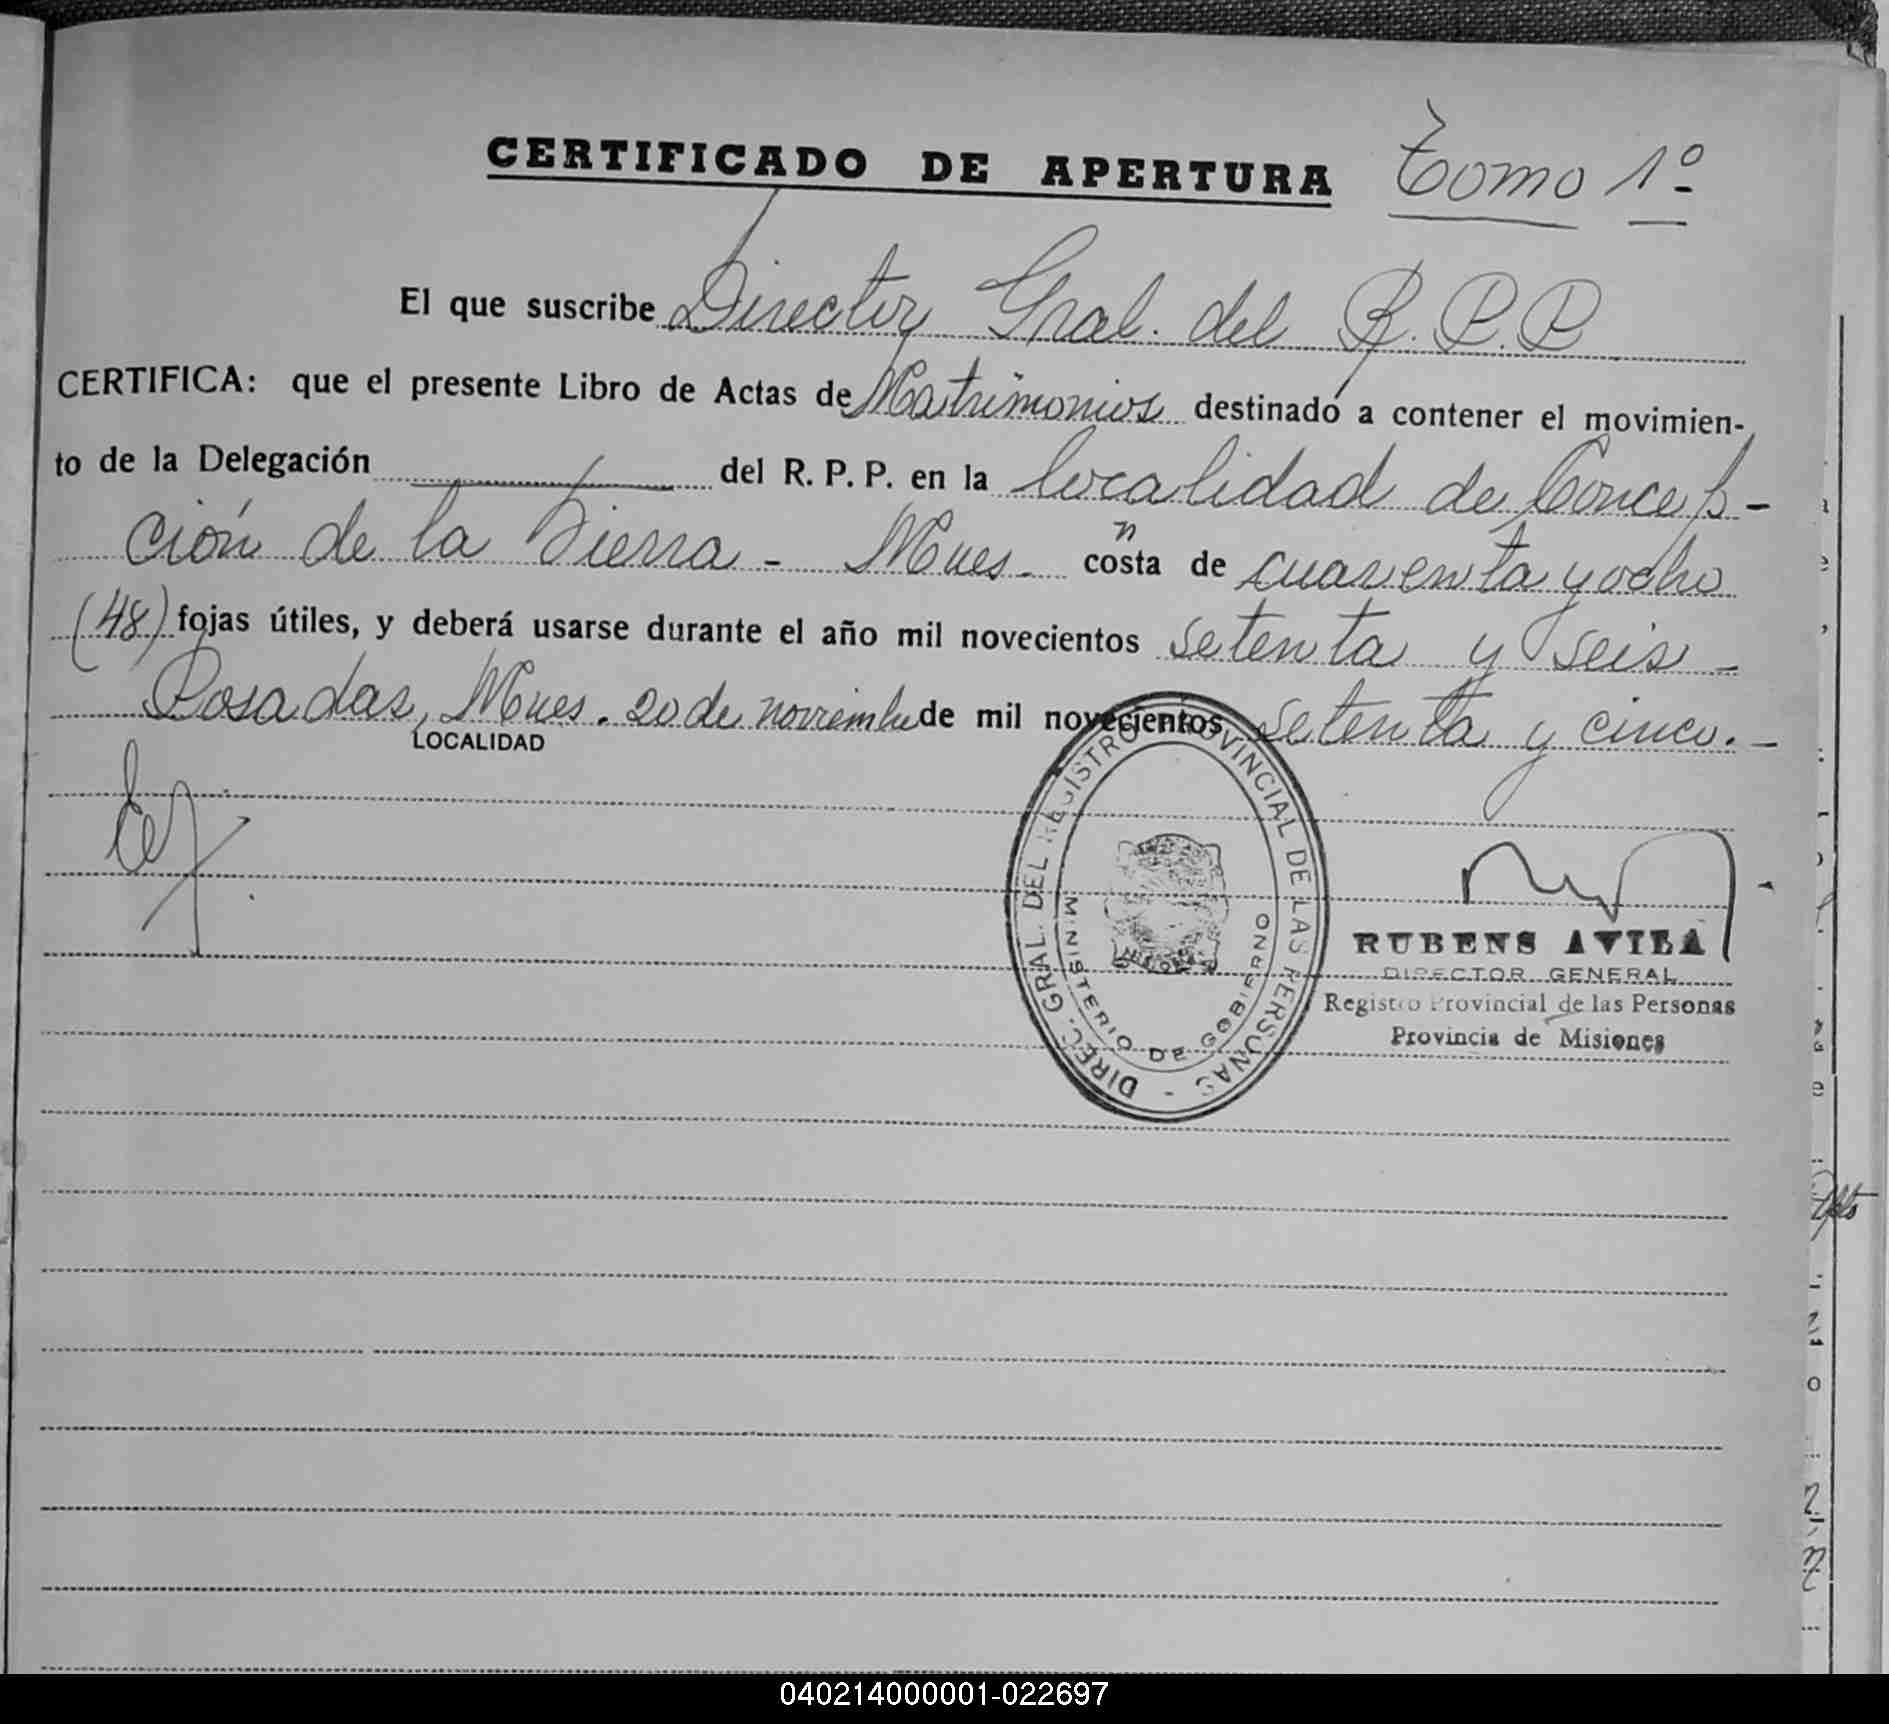 CERTIFICADO DE APERTURA Tomo 1º
El que suscribe Director Gral. del R.P.P
CERTIFICA: que el presente Libro de Actas de Matrimonios destinado a contener el movimien-
to de la Delegación del R. P. P. en la localidad de Concep-
ción de la Sierra - Mnes - consta de cuarenta y ocho
(48) fojas útiles, y deberá usarse durante el año mil novecientos setenta y seis -
Posadas, Mnes. 20 de noviembre de mil novecientos setenta y cinco. -
LOCALIDAD
DIREC. GRAL. DEL REGISTRO PROVINCIAL DE LAS PERSONAS -
MINISTERIO DE GOBIERNO
RUBENS AVILA
DIRECTOR GENERAL
Registro Provincial de las Personas
Provincia de Misiones
040214000001-022697